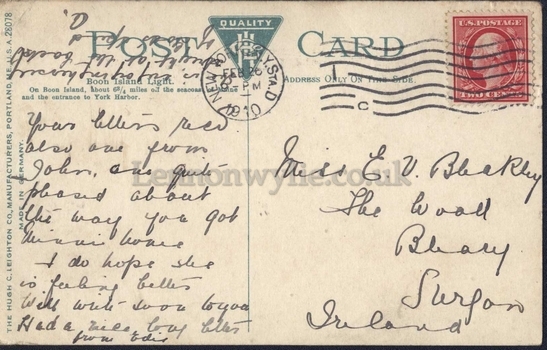 POST CARD
QUALITY
Boon Island Light.
On Boon Island, about 6¾ miles off the seacoast of Maine
and the entrance to York Harbor.
ADDRESS ONLY ON THIS SIDE.
U.S. POSTAGE
TWO CENTS
NEW YORK, N.Y. STA. D
FEB 26
PM
1910
C
THE HUGH C. LEIGHTON CO., MANUFACTURERS, PORTLAND, ME., U.S.A. 26078
MADE IN GERMANY.
Your letters recd
also one from
John, are quite
pleased about
the way you got
Minnie home
I do hope she
is feeling better
Will write soon to you
Had a nice long letter
from
Miss E. V. Bleakley
The Wood
Bleary
Lurgan
Ireland
Lennonwylie.co.uk